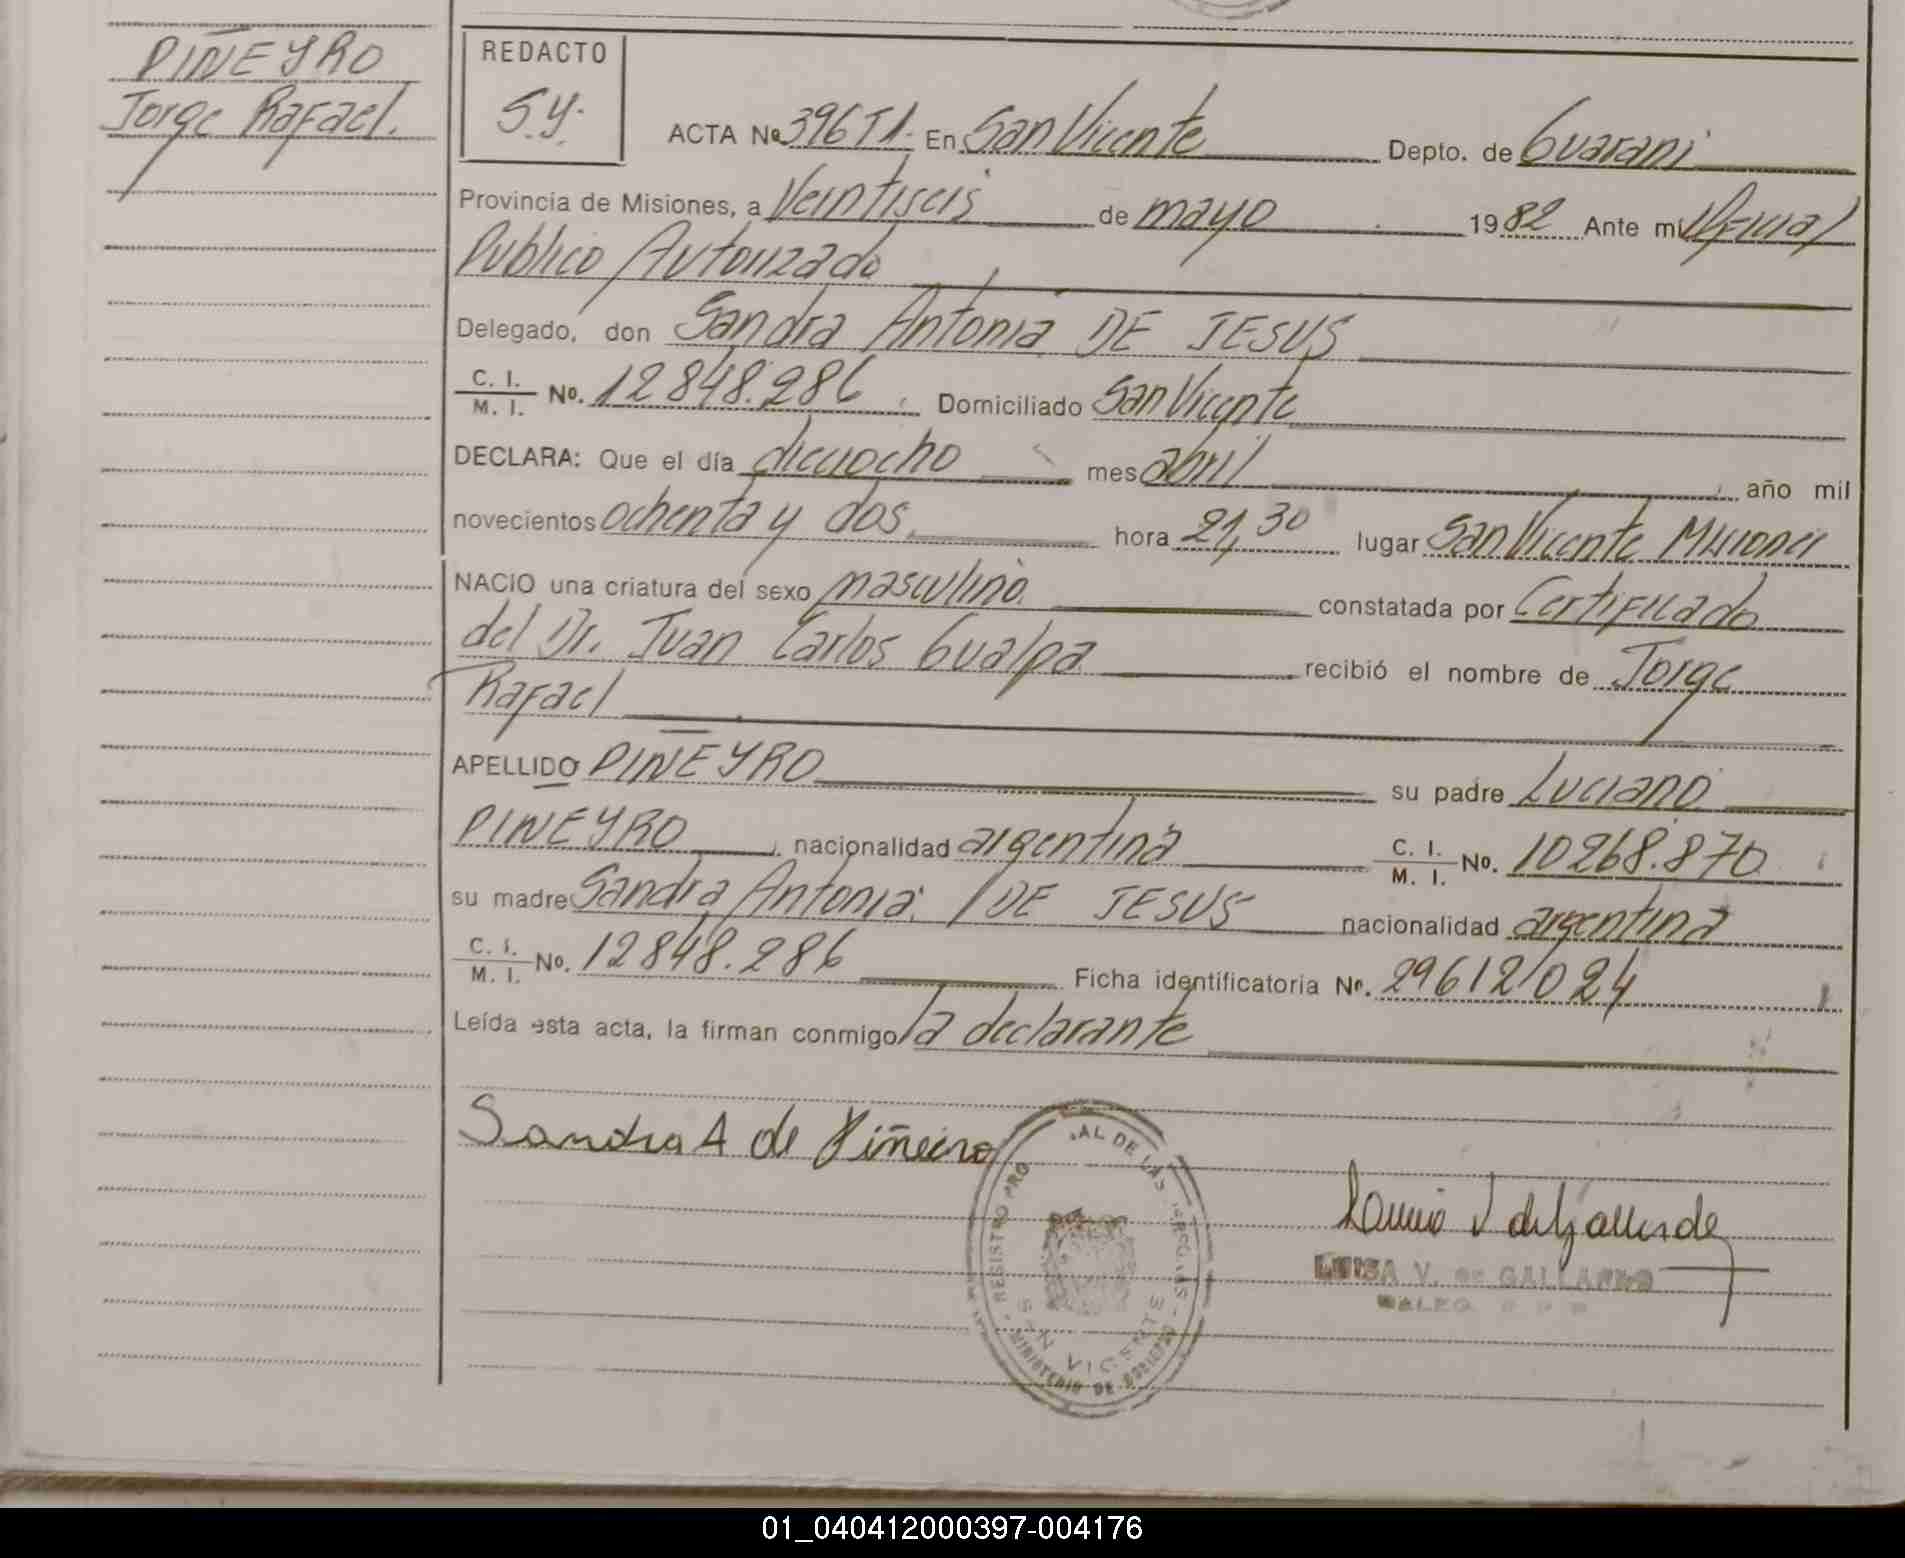 PIÑEYRO
Jorge Rafael.
REDACTO
S.Y.
ACTA Nº 396 T1. En San Vicente Depto. de Guarani
Provincia de Misiones, a Veintiseis de mayo 1982 Ante mi Oficial
Publico Autorizado
Delegado, don Sandra Antonia DE JESUS
C. I. / M. I. No. 12848.286 Domiciliado San Vicente
DECLARA: Que el día dieciocho mes abril año mil
novecientos ochenta y dos hora 21,30 lugar San Vicente Misiones
NACIO una criatura del sexo masculino. constatada por Certificado
del Dr. Juan Carlos Gualpa recibió el nombre de Jorge
Rafael
APELLIDO PIÑEYRO su padre Luciano
PINEYRO nacionalidad argentina C. I. / M. I. No. 10268.870
su madre Sandra Antonia DE JESUS nacionalidad argentina
C. I. / M. I. No. 12848.286 Ficha identificatoria Nº. 29612024
Leída esta acta, la firman conmigo la declarante
Sandra A de Piñeiro
REGISTRO PRO AL DE LAS
SAN VICENTE
MINISTERIO DE
LUISA V. de GALLARDO
01_040412000397-004176